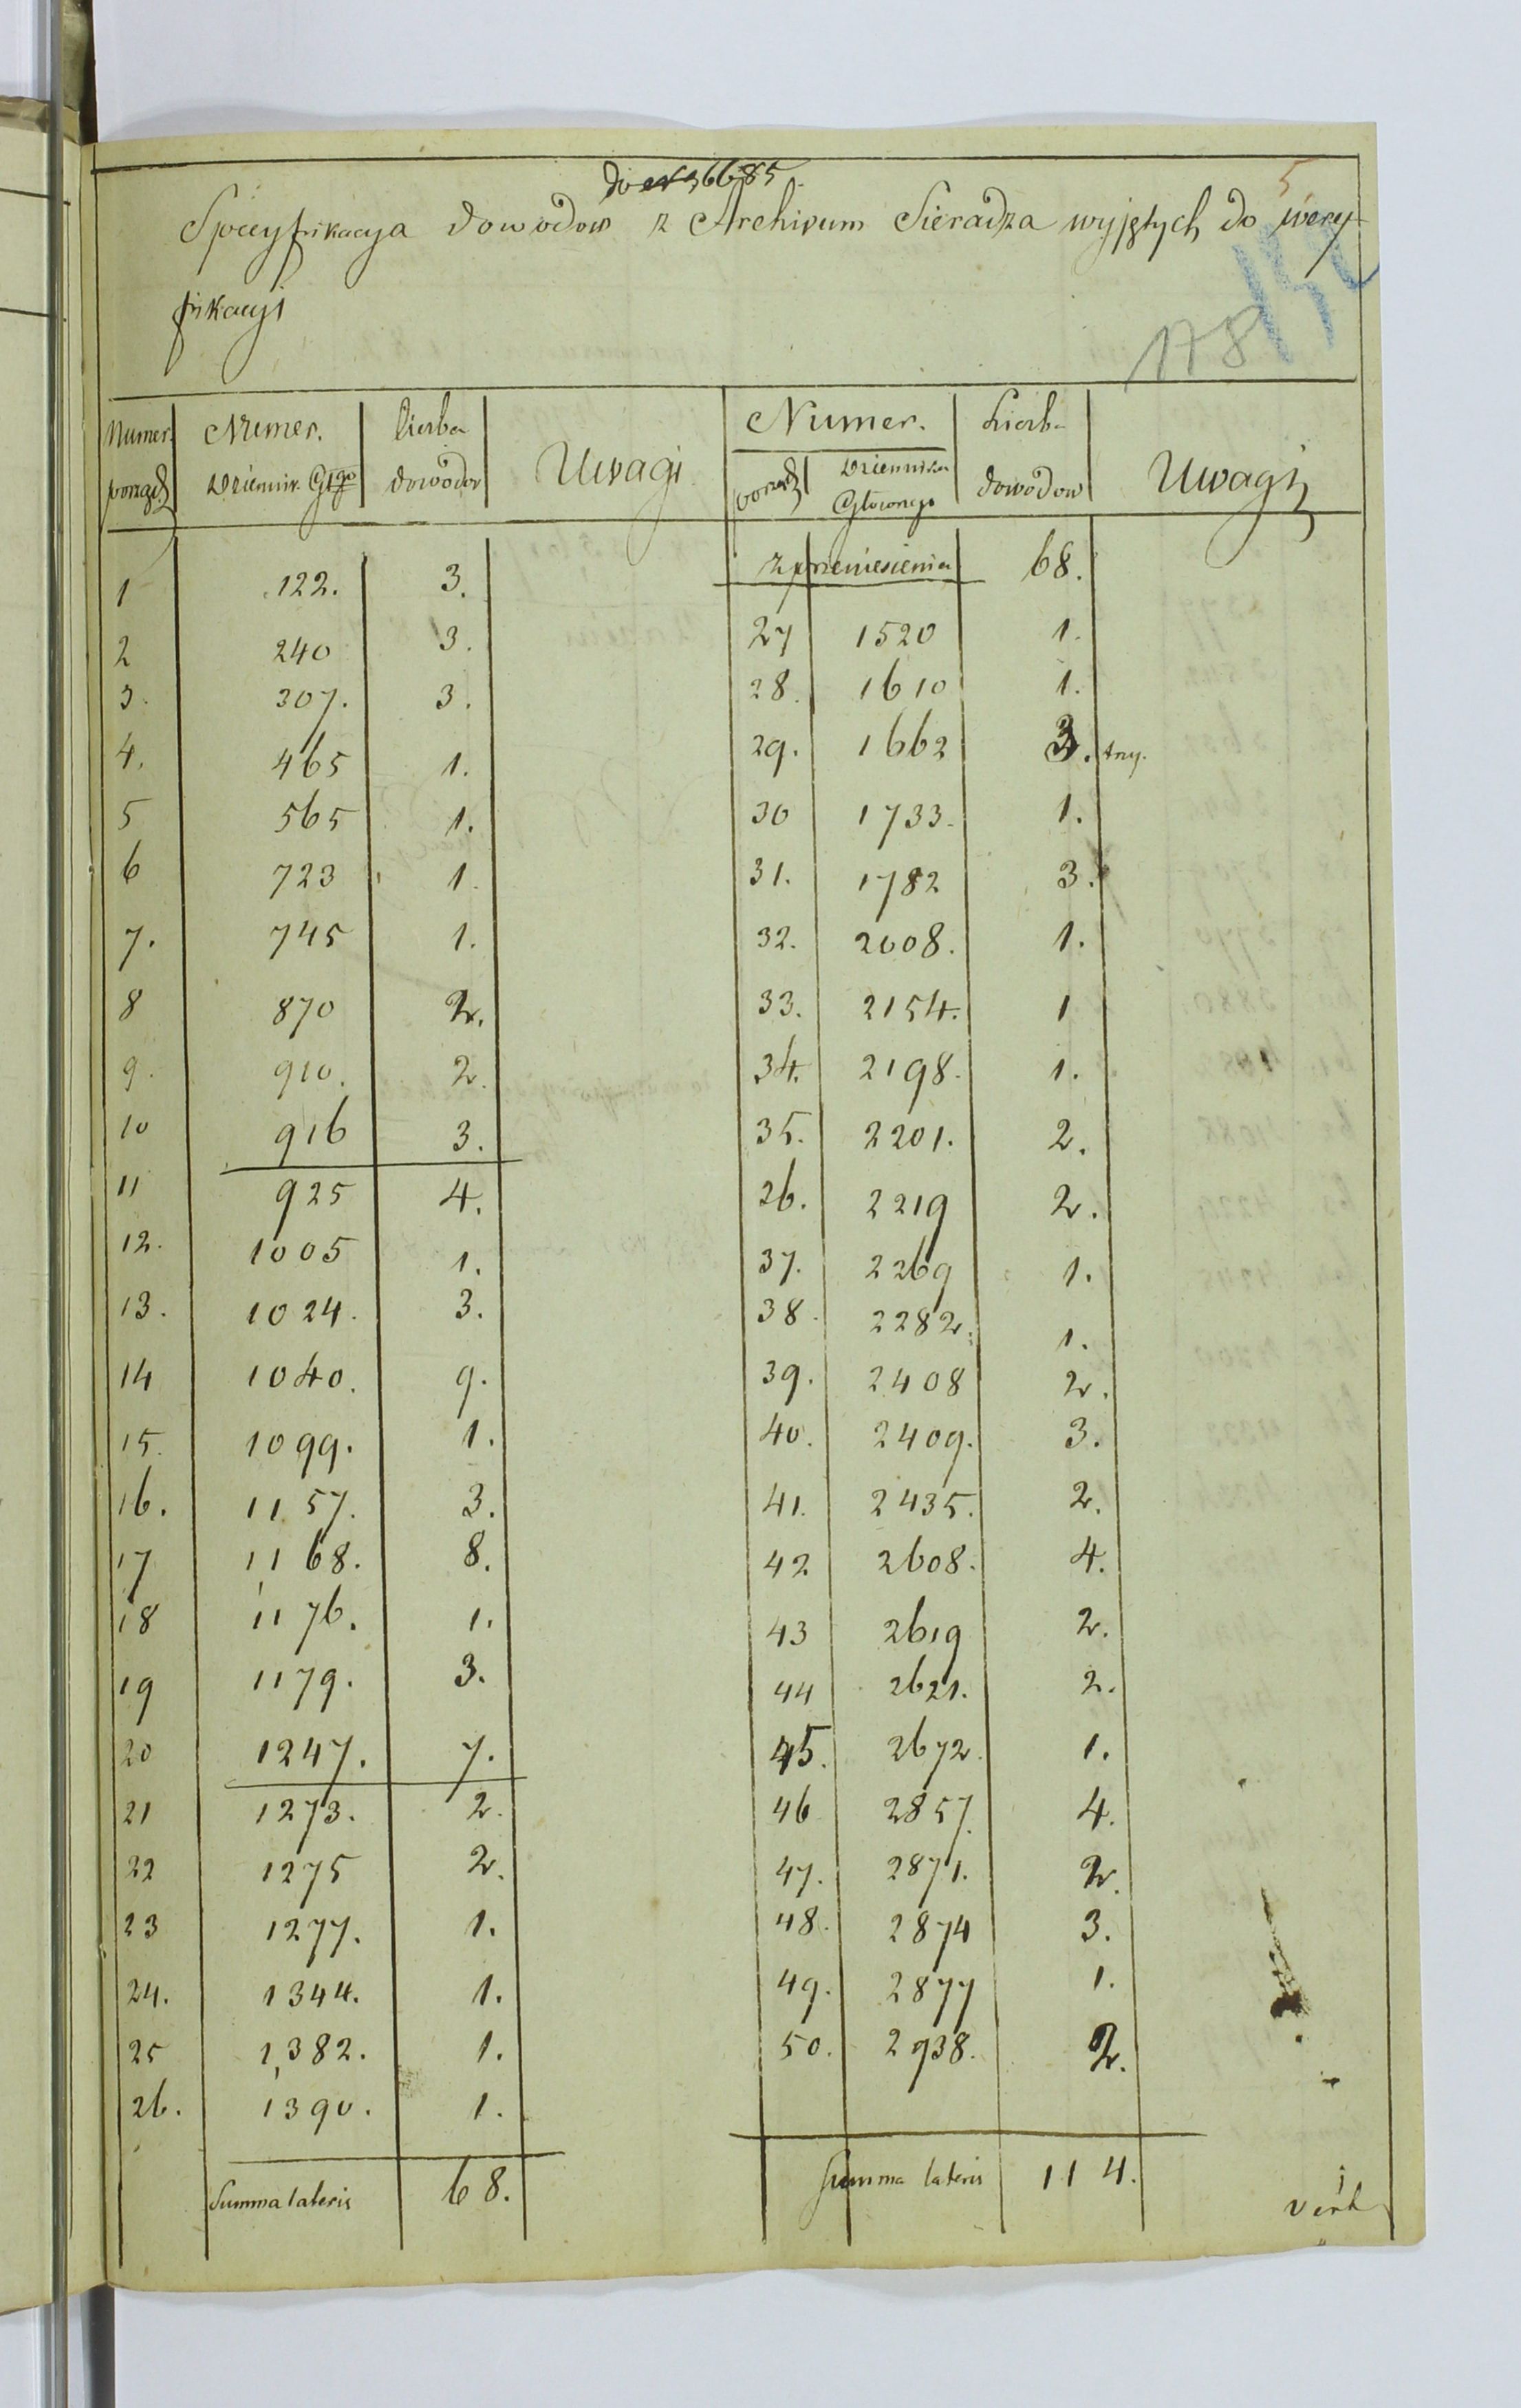 do N 36685.
5
Specyfikacya dowodow z Archivum Sieradza wyjętych do wery-
fikacyi
178
Numer. Numer. Liczba Uwagi Numer. Liczba Uwagi
porząd Dziennik. Głgo dowodow porząd Dziennika dowodow
Głownego
z przeniesienia 68.
1 122. 3.
2 240 3. 27 1520 1.
3. 307. 3. 28. 1610 1.
4. 465 1. 29. 1662 3. trzy.
5 565 1. 30 1733. 1.
6 723 1. 31. 1782 3.
7. 745 1. 32. 2008. 1.
8 870 2. 33. 2154. 1
9. 910. 2. 34. 2198. 1.
10 916 3. 35. 2201. 2.
11 925 4. 26. 2219 2.
12. 1005 1. 37. 2269 1.
13. 1024. 3. 38. 2282. 1.
14 1040. 9. 39. 2408 2.
15. 1099. 1. 40. 2409. 3.
16. 1157. 3. 41. 2435. 2.
17 1168. 8. 42 2608. 4.
18 1176. 1. 43 2619 2.
19 1179. 3. 44 2621. 2.
20 1247. 7. 45. 2672. 1.
21 1273. 2. 46 2857. 4.
22 1275 2. 47. 2871. 2.
23 1277. 1. 48. 2874 3.
24. 1344. 1. 49. 2877 1.
25 1382. 1. 50. 2938. 2.
26. 1390. 1.
Summa lateris 68. Summa lateris 114.